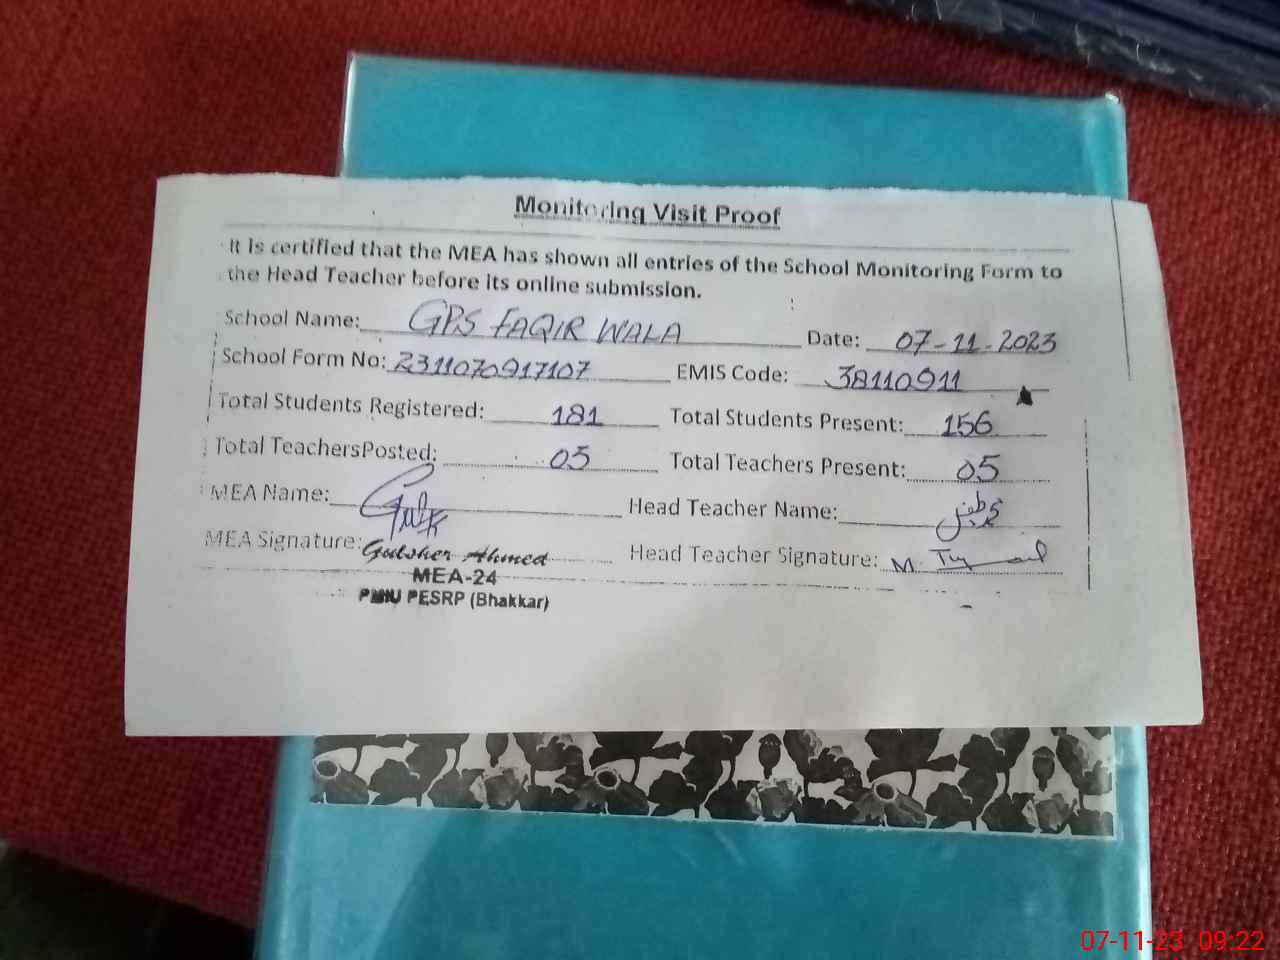 Monitoring Visit Proof
It is certified that the MEA has shown all entries of the School Monitoring Form to
the Head Teacher before its online submission.
School Name: GPS FAQIR WALA Date: 07-11-2023
School Form No: 2311070917107 EMIS Code: 38110911
Total Students Registered: 181 Total Students Present: 156
Total TeachersPosted: 05 Total Teachers Present: 05
MEA Name: Head Teacher Name:
MEA Signature: Gulsher Ahmed Head Teacher Signature: M.
MEA-24
PMIU PESRP (Bhakkar)
07-11-23 09:22